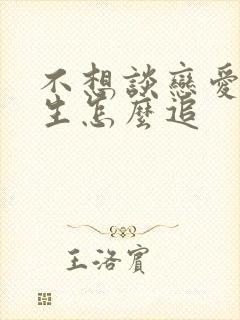 不想談戀愛
生怎麼追
王洛賓